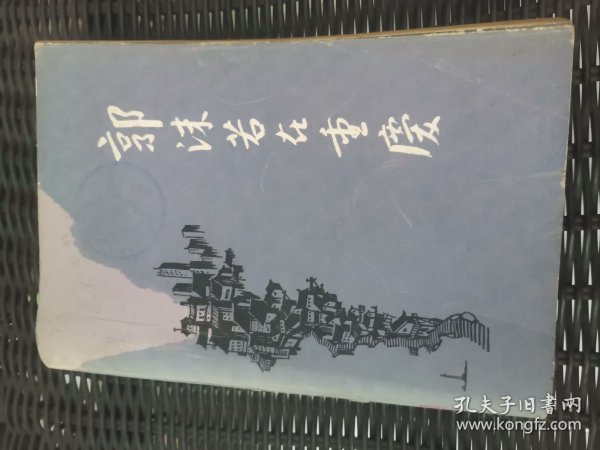 郭沫若在重庆
孔夫子旧書网
www.kongfz.com